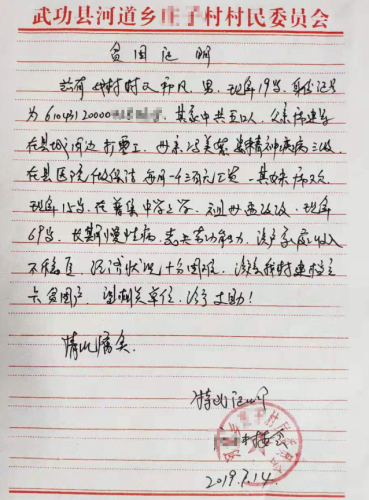 武功县河道乡庄子村村民委员会
贫困证明
兹有 村村 男，现年19岁，身份证号
为61043120000 ，其家中共五口人，父亲
在县城周边打零工，母亲 患精神疾病三级
在县医院做保洁，每月一千三百元工资，其妹
现年15岁，在普集中学上学，祖母 ，现年
69岁，长期慢性病，丧失劳动能力，该户家庭收入
不稳定，经济状况十分困难，
卡贫困户，望相关单位，给予支助！
情况属实
特此证明
村委会
2019.7.14